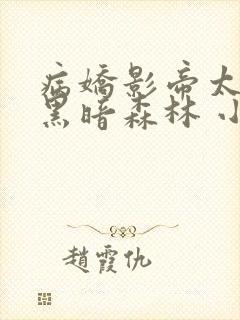 病嬌影帝太
黑暗森林 小
趙霞仇